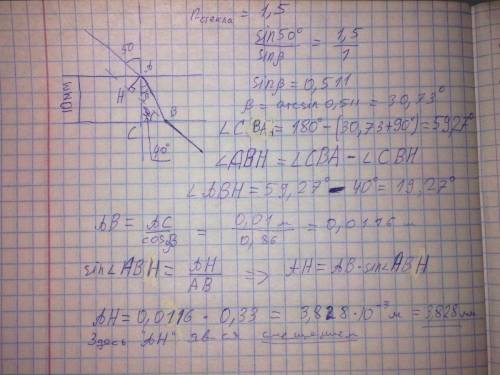 nстекла = 1,5
sin50° / sinβ = 1,5 / 1
sinβ = 0,511
β = arcsin 0,511 = 30,73°
∠CBA = 180° - (30,73 + 90°) = 59,27°
∠ABH = ∠CBA - ∠CBH
∠ABH = 59,27° - 40° = 19,27°
50
A
H
10мм
C
B
40°
AB = AC / cosβ = 0,01 м / 0,86 = 0,0116 м
sin∠ABH = AH / AB => AH = AB · sin∠ABH
AH = 0,0116 · 0,33 = 3,828 · 10⁻³ м = 3,828 мм
Здесь "AH" яв-ся смещением